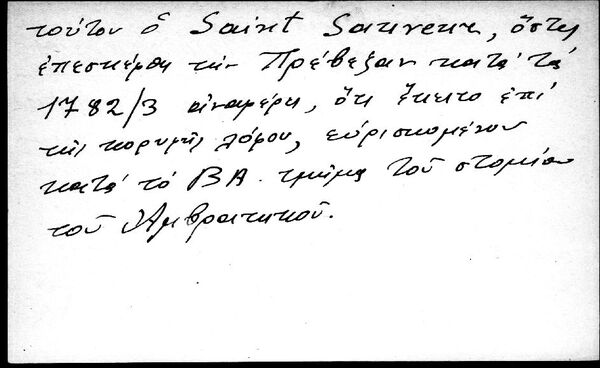 τούτου ὁ Saint Sauveur, ὅστις
ἐπεσκέφθη τὴν Πρέβεζαν κατὰ τὰ
1782/3 ἀναφέρει, ὅτι ἔκειτο ἐπὶ
τῆς κορυφῆς λόφου, εὑρισκομένου
κατὰ τὸ ΒΑ. τμῆμα τοῦ στομίου
τοῦ Ἀμβρακικοῦ.